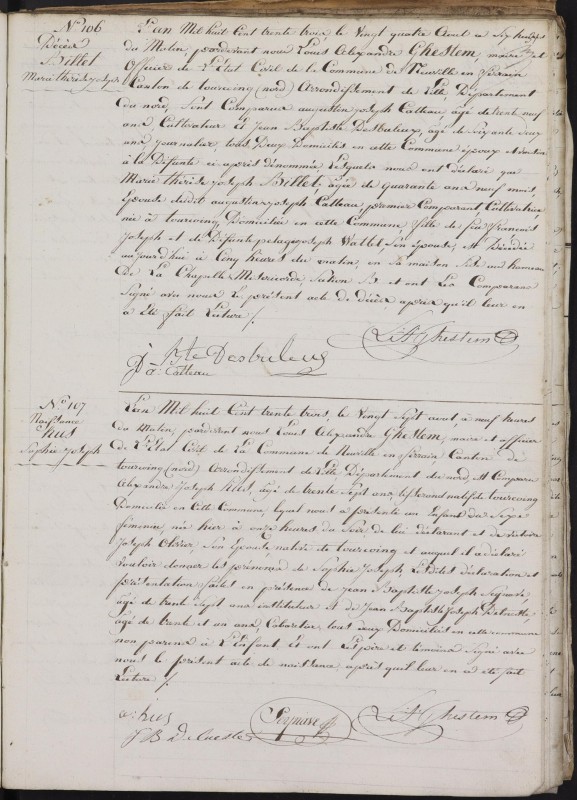 N.º 106
Décès
Billet
Marie thérèse joseph
L'an Mil huit Cent trente trois, le Vingt quatre aout à Sept heures
du Matin, pardevant nous Louis Alexandre Ghestem, maire et
officier de L'Etat Civil de la Commune de Neuville en ferrain
Canton de tourcoing (nord) Arrondissement de Lille, Département
du nord, Sont Comparus augustin joseph Catteau, âgé de trente neuf
ans Cultivateur et Jean Baptiste Desbuleux, âgé de Soixante deux
ans journalier, tous Deux Domiciliés en cette Commune époux et
à la Défunte ci après dénommée, Lesquels nous ont déclaré que
Marie thérèse joseph Billet, âgée de quarante ans neuf mois,
Epouse dudit augustin joseph Catteau, premier Comparant Cultivatrice
née à tourcoing, Domiciliée en cette Commune fille de feu françois
Joseph et de Défunte pelagie joseph Wattel Son épouse, Est Décédée
aujourd'hui à Cinq heures du matin, en Sa maison Sise au hameau
De La Chapelle Misericorde Section B et ont Les Comparans
Signé avec nous Le présent acte de décès après qu'il leur en
à Eté fait Lecture ∫.
L: A: Ghestem
J Bte Desbuleux
a: Catteau
N.º 107
Naissance
hus
Sophie Joseph
L'an Mil huit Cent trente trois, le Vingt Sept aout, à neuf heures
du Matin, pardevant nous Louis Alexandre Ghestem, maire et officier
de L'Etat Civil de La Commune de Neuville en ferrain Canton de
tourcoing (nord) Arrondissement de Lille Département du nord, Est Comparu
Alexandre Joseph hus, âgé de trente Sept ans, tisserand natif de tourcoing
Domicilié en Cette Commune, Lequel nous a présenté un Enfant du Sexe
féminin, née hier à onze heures du Soir, de lui déclarant et de
Joseph Olivier, Son Epouse native de tourcoing et auquel il a déclaré
Vouloir donner les prénoms de Sophie Joseph, Lesdites déclaration et
présentation faites en présence de jean Baptiste joseph Seynave,
âgé de trente Sept ans instituteur et de Jean Baptiste Joseph
âgé de trente et un ans, Cabaretier tous deux Domiciliés en cette commune
non parens à L'Enfant, Et ont Les père et témoins Signé avec
nous le présent acte de naissance après qu'il leur en a été fait
Lecture ∫.
a: hus
Seynave
L: A: Ghestem